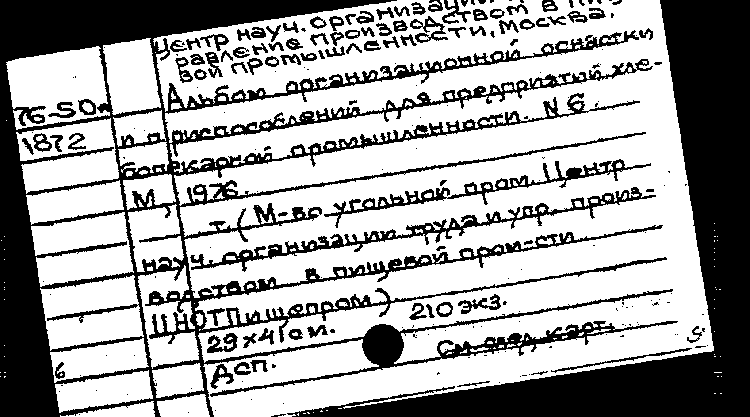 Центр науч. организации
равление производством в пище-
вой промышленности, Москва.
Альбом организационной оснастки
и приспособлений для предприятий хле-
бопекарной промышленности. N 6.
М., 1976.
т. (М-во угольной пром. Центр
науч. организации труда и упр. произ-
водством в пищевой пром-сти
ЦНОТПищепром)
29×41 см. 210 экз.
Дсп.
См. след. карт.
76-50
1872
6